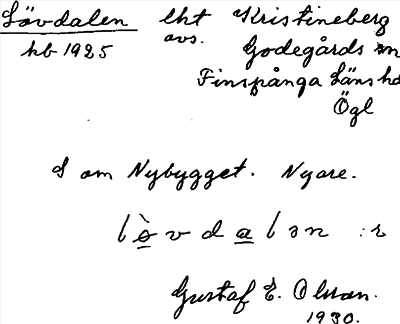 Lövdalen lht Kristineberg
hb 1925 avs. Godegårds sn
Finspånga Länshd
Ögl
S om Nybygget. Nyare.
lò̱vda̱lən :r
Gustaf E. Olsson.
1930.